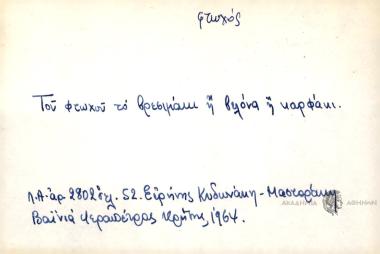 φτωχός
Τοῦ φτωχοῦ τό βρεσιμιάκι ἤ βελόνα ἤ καρφάκι.
Λ.Α. ἀρ. 2802 σελ. 52. Εἰρήνης Κυδωνάκη - Μαστοράκη
Βαϊνιά Ἱεραπέτρας Κρήτης, 1964.
ΑΚΑΔΗΜΙΑ ΑΘΗΝΩΝ